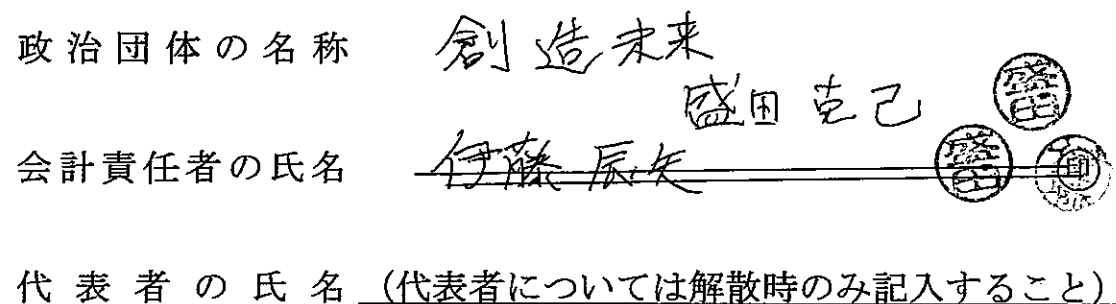 政治団体の名称 創造未来
盛田克己 盛田
会計責任者の氏名 伊藤辰矢 盛田 印
代表者の氏名 (代表者については解散時のみ記入すること)